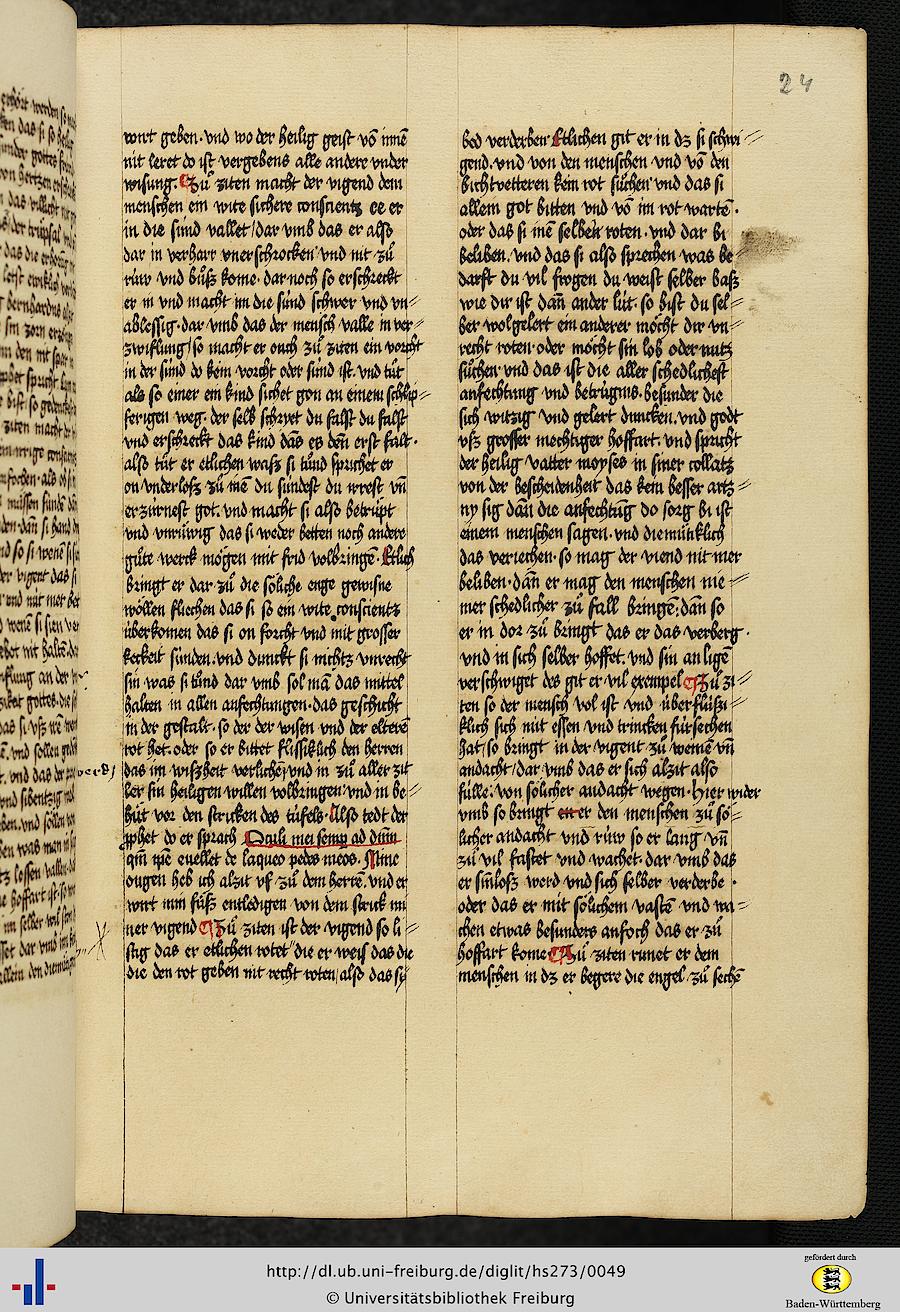 24
wirt geben · vnd wo der heilig geist vō innē
nit leret do ist vergebens alle andere vnder
wisung. Zuͦ ziten macht der vigend dem
menschen ein wite sichere conscientz ee er
in die sünd vallet / dar vmb das er also
dar in verharr vnerschrocken vnd nit zuͦ
rüw vnd buͦß kome · dar noch so erschreckt
er in vnd macht im die sünd schwer vnd vn⸗
ablessig · dar vmb das der mensch valle in ver⸗
zwiflung / so macht er ouch zuͦ ziten ein vorcht
in der sünd do kein vorcht oder sünd ist. vnd tuͦt
als so einer ein kind sichet gon an einem schlip⸗
ferigen weg · der selb schryet du falst du falst
vnd erschreckt das kind das es den erst falt ·
also tuͦt er etlichen waß si tuͦnd sprichet er
on vnderloß zuͦ inē du sündest du irrest vn̄
erzürnest got. vnd macht si also betruͤpt
vnd vnruͤwig das si weder betten noch andere
guͦte werck mögen mit frid volbringen · Etlich
bringt er dar zuͦ die söliche enge gewisne
wöllen fliechen das si so ein wite conscientz
überkomen das si on forcht vnd mit grosser
keckeit sünden. vnd dunckt si nichtz vnrecht
sin was si tuͦnd dar vmb sol mā das mittel
halten in allen anfechungen · das geschicht
in der gestalt · so der der wisen vnd der elteren
rot het · oder so er bittet flissiklich den herren
das im wißheit verlichē vnd in zuͦ aller zit
ler sin heiligen willen volbringen vnd in be⸗
huͤt vor den stricken des tüfels · Also redt der
ꝓphet do er sprach Oculi mei semꝑ ad dūm
qm̄ ip̄e euellet de laqueo pedes meos. Mine
ougen heb ich alzit vf zuͦ dem herrē. vnd er
wirt min fuͤß entledigen von dem strick mi
ner vigend Zuͦ ziten ist der vigend so li⸗
stig das er etlichen rotet die er weis das die
die den rot geben nit recht roten / also das sÿ
bed verderben Etlichen git er in dz si schwi⸗
gend. vnd von den menschen vnd vō den
bichtvetteren kein rot suͦchen vnd das si
allein got bitten vnd vō im rot wartē ·
oder das si inē selben roten · vnd dar bi
beliben. vnd das si also sprechen was be⸗
darft du vil frogen du weist selber baß
wie dir ist dañ ander lüt · so bist du sel⸗
ber wol gelert ein anderer möcht dir vn⸗
recht roten · oder möcht sin lob oder nutz
suͦchen vnd das ist die aller schedlichest
anfechtung vnd betrügnis. besunder die
sich witzig vnd gelert duncken. vnd godt
vß grosser mechtiger hoffart. vnd spricht
der heilig vatter moyses in siner collatz
von der bescheidenheit das kein besser artz⸗
ny sig dañ die anfechtūg do sorg bi ist
einem menschen sagen · vnd diemuͤtiklich
das veriechen · so mag der viend nit mer
beliben · dañ er mag den menschen nie⸗
mer schedlicher zuͦ fall bringē. dañ so
er in dor zuͦ bringt das er das verberg ·
vnd in sich selber hoffet. vnd sin an ligē
verschwiget des git er vil exempel Zuͦ zi⸗
ten so der mensch vol ist vnd überflüßi⸗
klich sich mit essen vnd trincken fürsechen
hat / so bringt in der vigent zuͦ weinē vn̄
andacht / dar vmb das er sich alzit also
fülle · von sölicher andacht wegen · Hier wider
vmb so bringt er den menschen zuͦ sö⸗
licher andacht vnd rüw so er lang vn̄
zuͦ vil fastet vnd wachet. dar vmb das
er sinloß werd vnd sich selber verderbe ·
oder das er mit sölichem vastē vnd wa⸗
chen etwas besunders anfoch das er zuͦ
hoffart kome Zuͦ ziten runet er dem
menschen in dz er begere die engel zuͦ sechē
http://dl.ub.uni-freiburg.de/diglit/hs273/0049
© Universitätsbibliothek Freiburg
gefördert durch
Baden-Württemberg